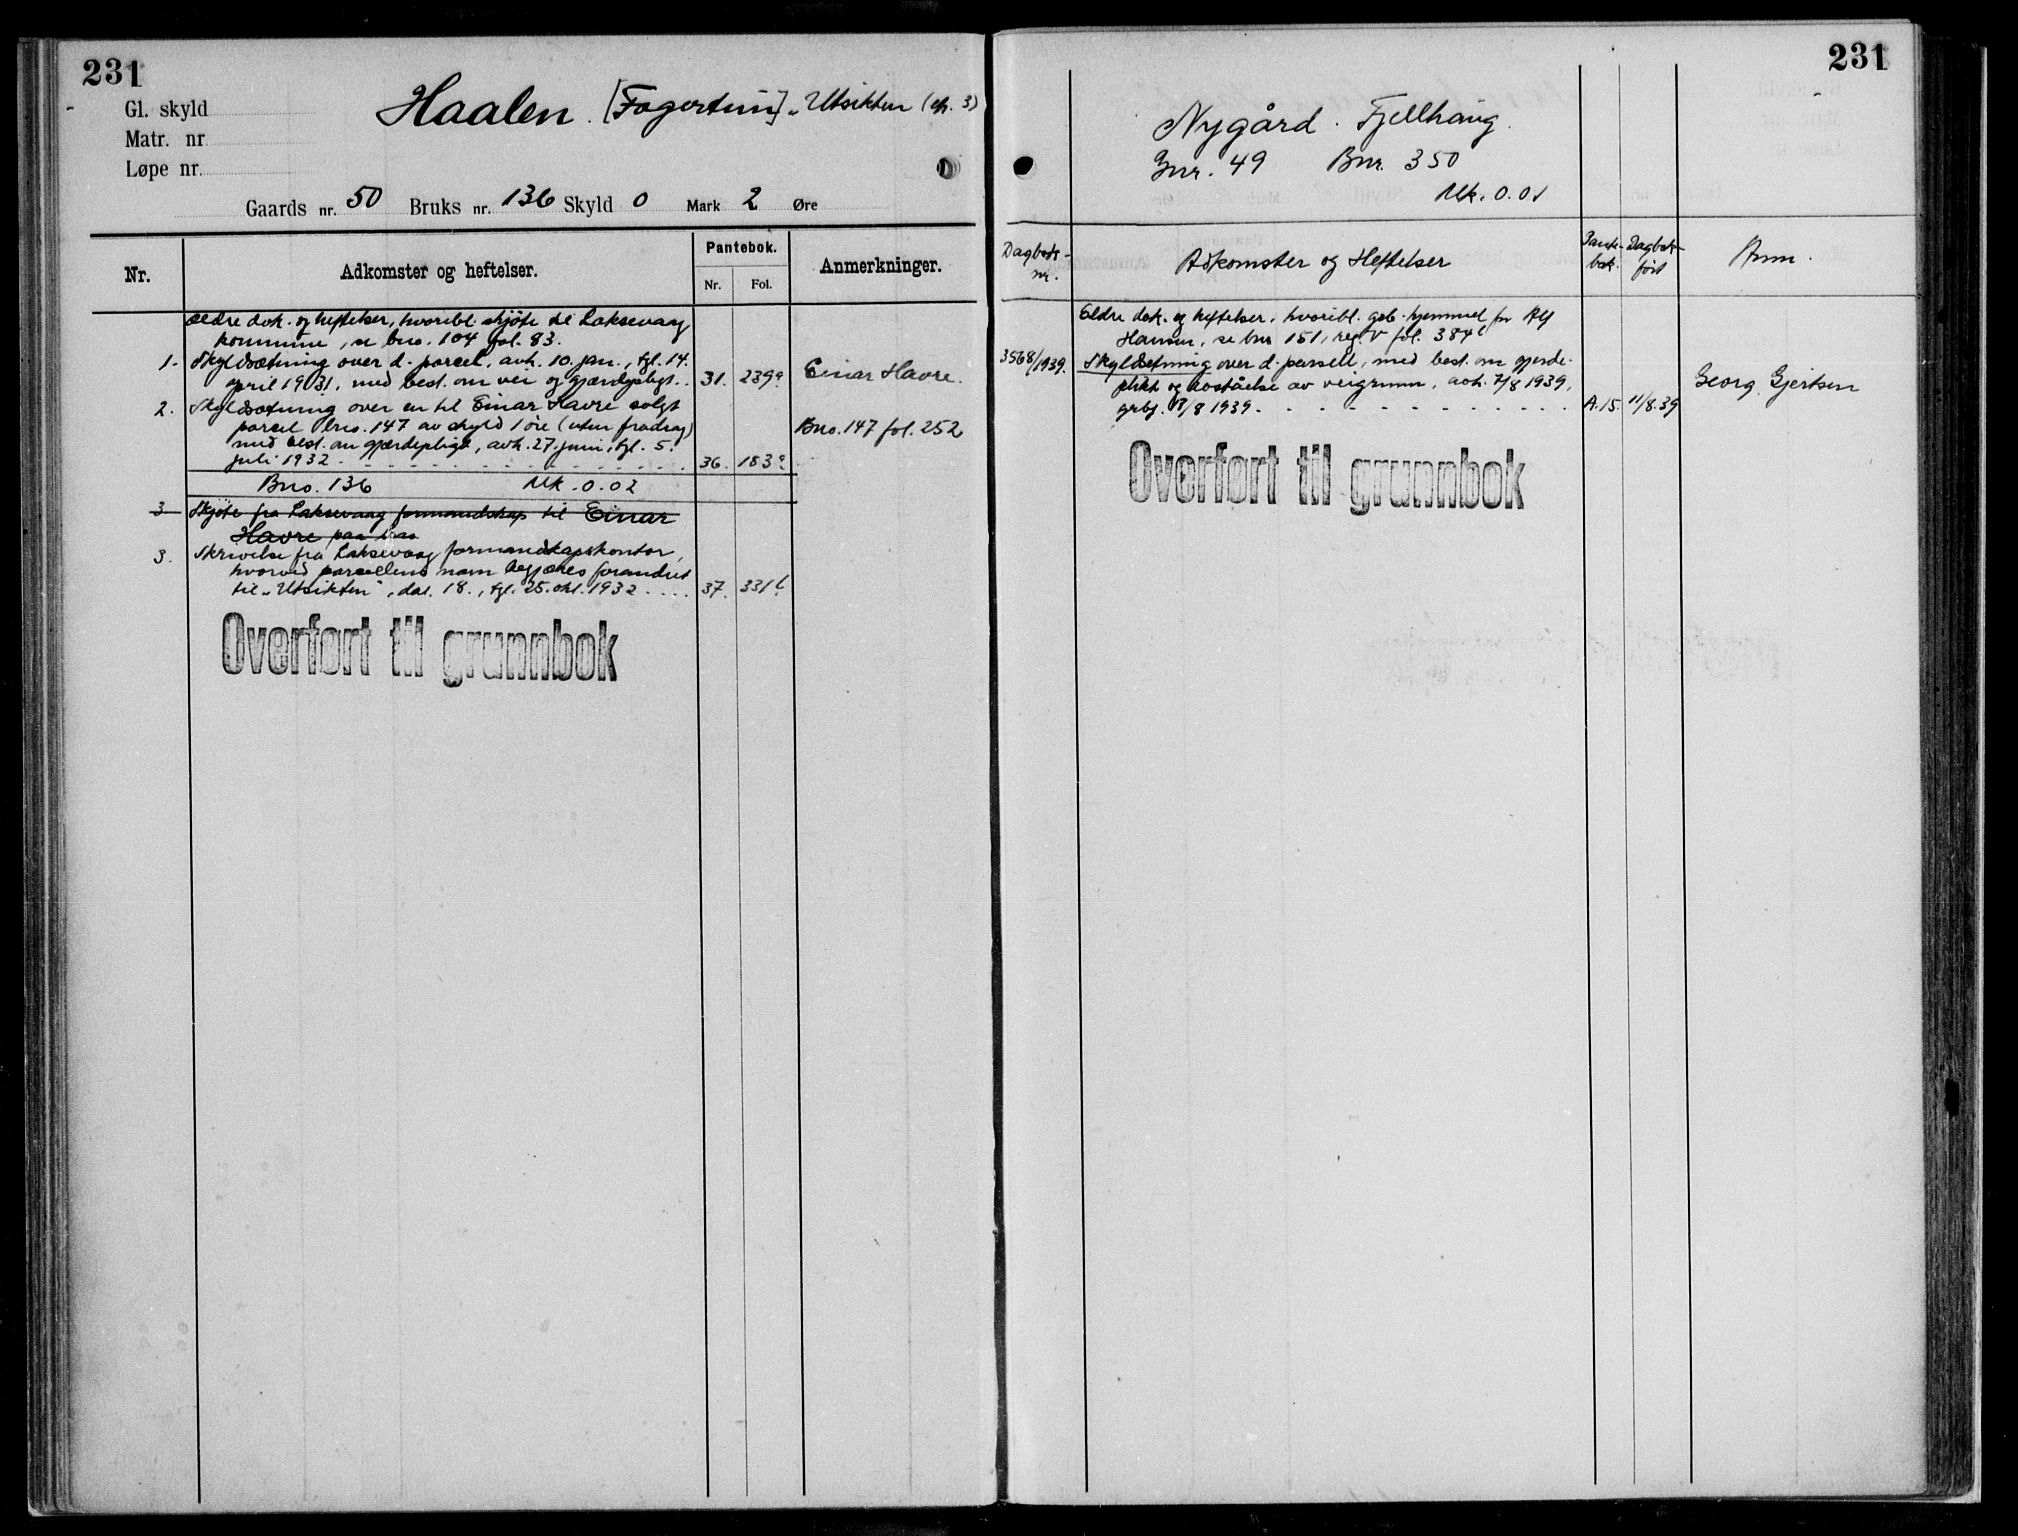 231
Gl. skyld
Matr. nr.
Løpe nr.
Haalen. [Fagertun] "Utsikten (cfr. 3)
Gaards nr. 50 Bruks nr. 136 Skyld 0 Mark 2 Øre
Nr. Adkomster og heftelser. Pantebok. Nr. Fol. Anmerkninger.
Ældre dok. og heftelser, hvoribl. skjøte til Laksevaag
kommune, se bno. 104 fol. 83.
1. Skyldsætning over d. parcel, avh. 10. jan., tgl. 14.
april 1931, med best. om vei og gjærdepligt. . 31. 239a Einar Havre.
2. Skyldsætning over en til Einar Havre solgt
parcel bno. 147 av skyld 1 øre (uten fradrag)
med best. om gjærdepligt, avh. 27. juni, tgl. 5. Bno. 147 fol. 252
juli 1932 . . . . . . . . . . . . . . . . 36. 183a
Bno. 136 Mk. 0.02
3 Skjøte fra Laksevaag formandskap til Einar
Havre paa
3. Skrivelse fra Laksevaag formandskapskontor,
hvorved parcellens navn begjæres forandret
til "Utsikten", dat. 18., tgl. 25. okt. 1932 . . . . 37. 331b
Overført til grunnbok
231
Nygård. Fjellhaug.
Gnr. 49 Bnr. 350
Mk. 0.01
Dagbok-nr. Adkomster og Heftelser Pante-bok. Dagbok-ført Anm.
Eldre dok. og heftelser, hvoribl. hjemmel for Alf
Hansen, se bnr 151, reg. V fol. 384b
3568/1939. Skyldsetning over d. parsell, med best. om gjerde-
plikt og avståelse av veigrunn, avh. 7/8 1939, Georg Gjertsen
grbf. 11/8 1939 . . . . . . . . . . . . . A.15. 11/8.39
Overført til grunnbok